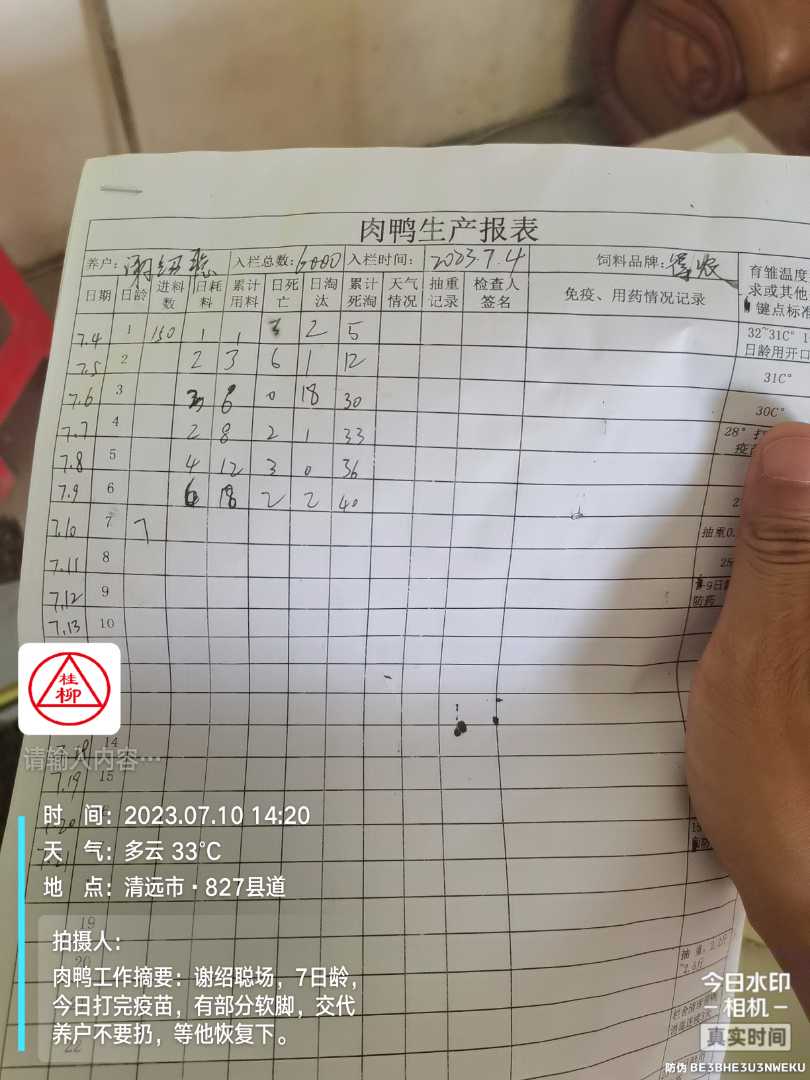 肉鸭生产报表
养户: 谢绍聪 入栏总数: 6000 入栏时间: 2023.7.4 饲料品牌:
日期 日龄 进料数 日耗料 累计用料 日死亡 日淘汰 累计死淘 天气情况 抽重记录 检查人签名 免疫、用药情况记录 育雏温度
求或其他
键点标准
7.4 1 150 1 1 3 2 5 32~31C° 1
日龄用开口
7.5 2 2 3 6 1 12 31C°
7.6 3 3 6 0 18 30 30C°
7.7 4 2 8 2 1 33 28°
7.8 5 4 12 3 0 36
7.9 6 6 18 2 2 40
7.10 7 7 抽重0.
7.11 8 25
7.12 9 -9日
防药
7.13 10
桂柳
请输入内容···
14
7.19 15
时 间: 2023.07.10 14:20
天 气: 多云 33℃
地 点: 清远市·827县道
19
20
22
拍摄人:
肉鸭工作摘要: 谢绍聪场，7日龄，
今日打完疫苗，有部分软脚，交代
养户不要扔，等他恢复下。
抽 重:
今日水印
-相机-
真实时间
防伪 BE3BHE3U3NWEKU